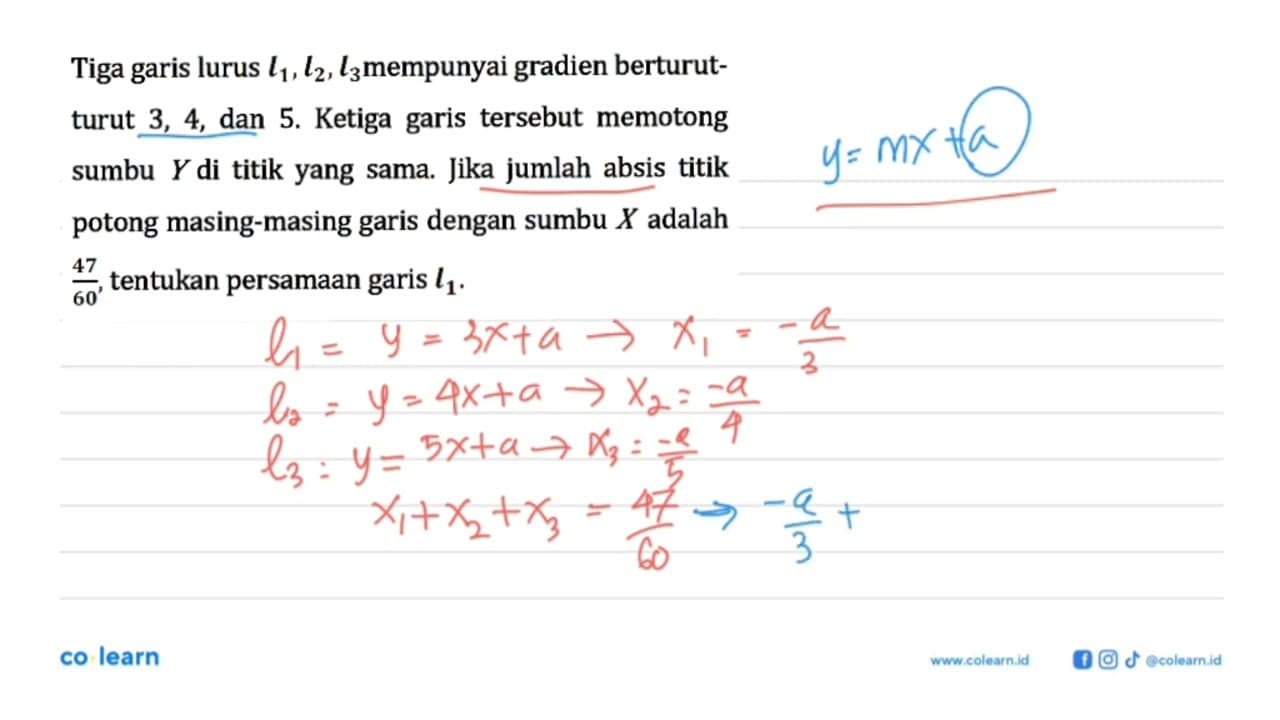 Tiga garis lurus l₁, l₂, l₃mempunyai gradien berturut-
turut 3, 4, dan 5. Ketiga garis tersebut memotong
sumbu Y di titik yang sama. Jika jumlah absis titik
potong masing-masing garis dengan sumbu X adalah
47/60, tentukan persamaan garis l₁.
y = mx + a
l₁ = y = 3x + a → x₁ = -a/3
l₂ = y = 4x + a → x₂ = -a/4
l₃ : y = 5x + a → x₃ = -a/5
x₁ + x₂ + x₃ = 47/60 → -a/3 +
co learn
www.colearn.id
@colearn.id